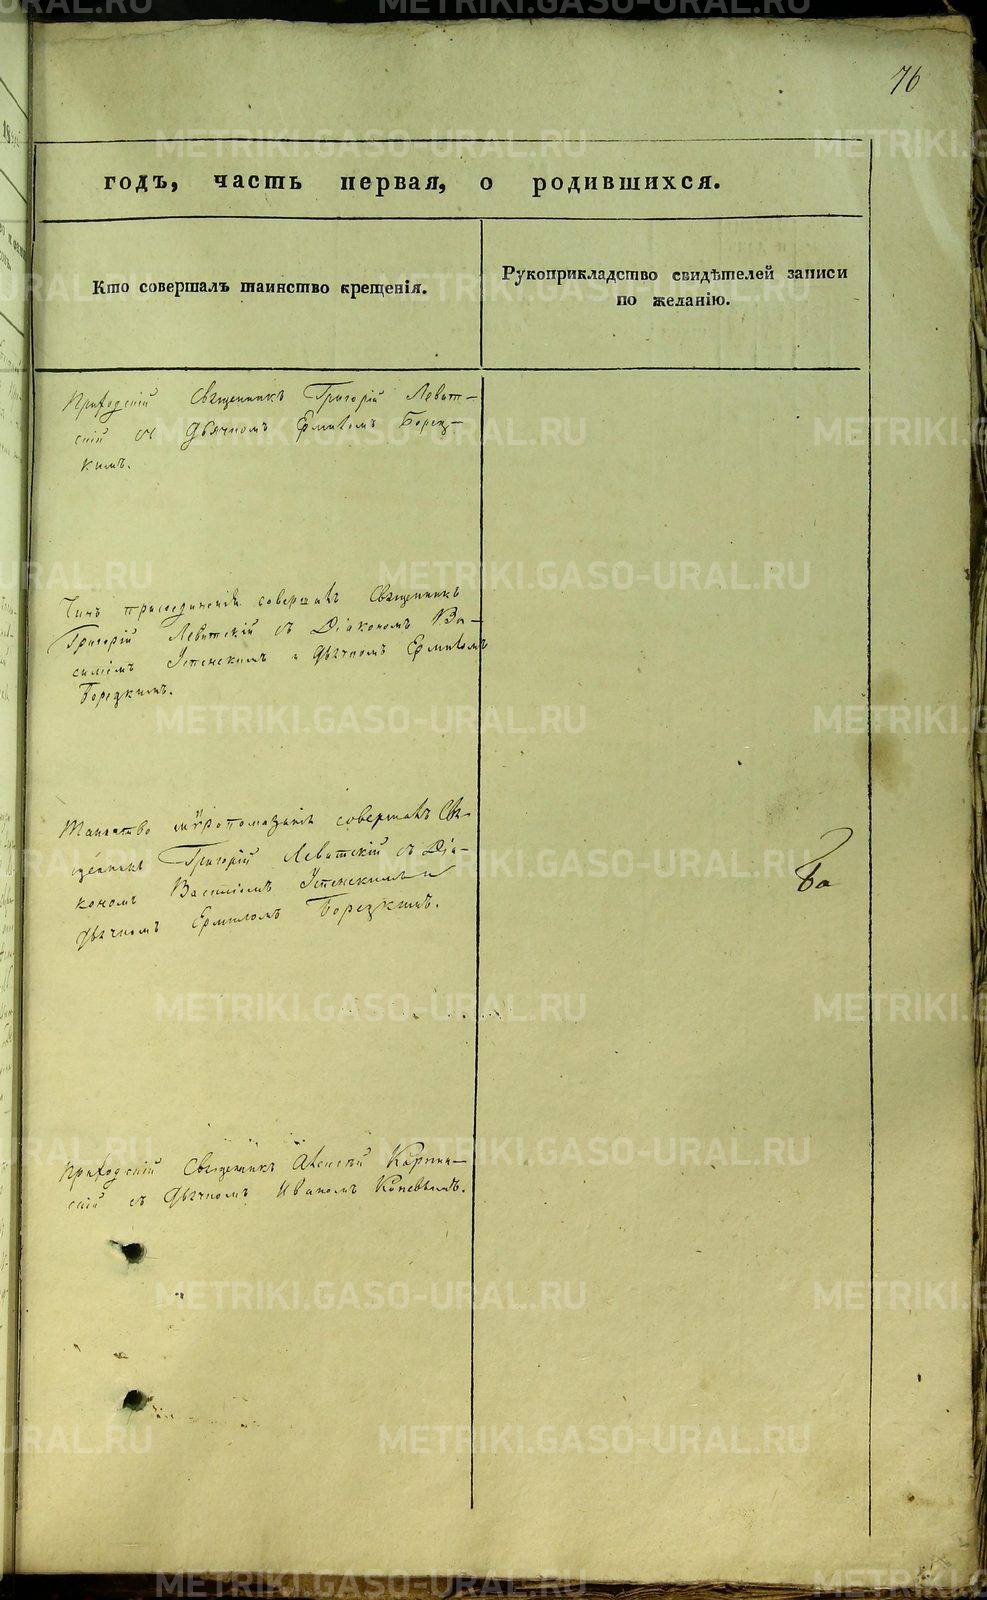 76
годъ, часть первая, о родившихся.
Кто совершалъ таинство крещенія.
Рукоприкладство свидѣтелей записи
по желанію.
Приходскій Священникъ Григорій Левит-
скій съ Дьячкомъ Ермиломъ Борец-
кимъ.
Чинъ присоединенія совершалъ Священникъ
Григорій Левитскій съ Діакономъ Ва-
силіемъ Успенскимъ и Дьячкомъ Ермиломъ
Борецкимъ.
Таинство мѵропомазанія совершалъ Свя-
щенникъ Григорій Левитскій съ Діа-
кономъ Василіемъ Успенскимъ и
дьячкомъ Ермиломъ Борецкимъ.
Приходскій Священникъ Алексѣй
скій съ Дьячкомъ Иваномъ
METRIKI.GASO-URAL.RU